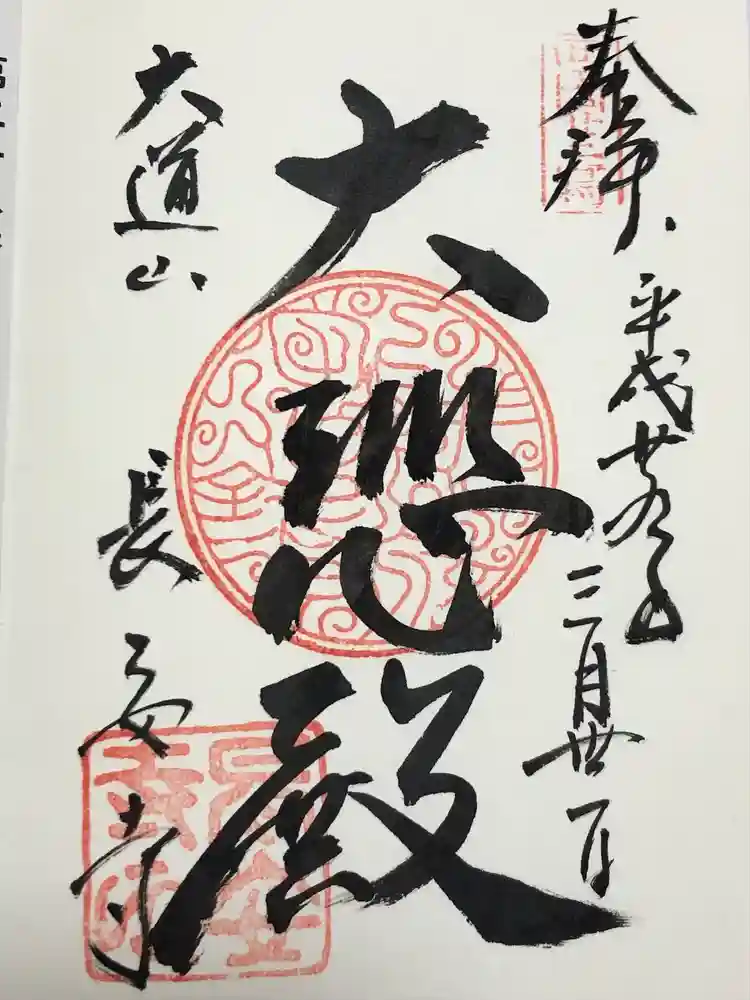 奉拝
平成廿九年三月丗一日
大悲殿
大道山
長安寺